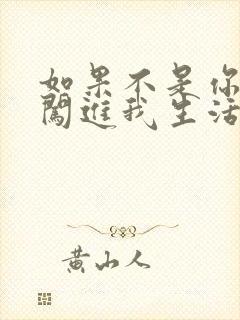 如果不是你
闖進我生活
黄山人